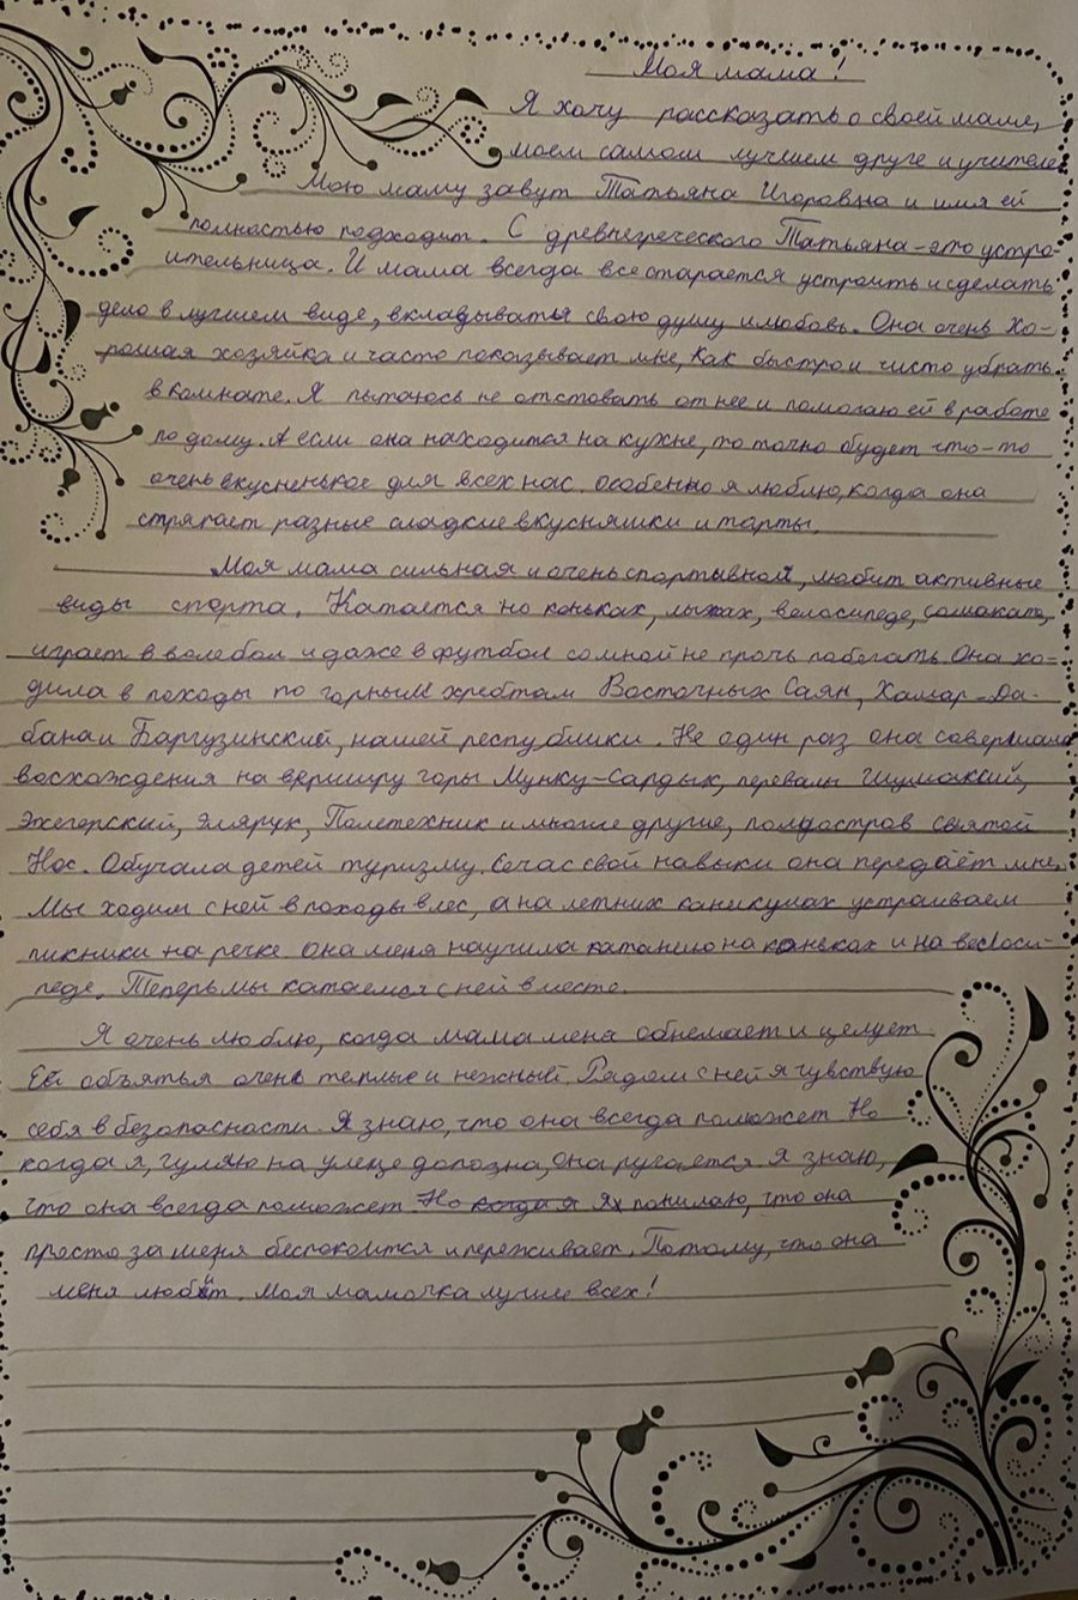 Моя мама!
Я хочу рассказать о своей маме,
моем самом лучшем друге и учителе.
Мою маму завут Татьяна Игоровна и имя ей
полностью подходит. С древнегреческого Татьяна – это устро-
ительница. И мама всегда все старается устроить и сделать
дело в лучшем виде, вкладывать свою душу и любовь. Она очень хо-
рошая хозяйка и часто показывает мне, как быстро и чисто убрать
в комнате. Я пытаюсь не отстовать от нее и помогаю ей в работе
по дому. А если она находится на кухне, то точно будет что-то
очень вкусненькое для всех нас. особенно я люблю, когда она
стряпает разные сладкие вкусняшки и тарты.
Моя мама сильная и очень спортывной, любит активные
виды спорта. Катается на коньках, лыжах, велосипеде, самокате,
играет в волебол и даже в футбол со мной не прочь побегать. Она хо-
дила в походы по горным хребтам Восточных Саян, Хамар-Да-
бана и Баргузинский, нашей республики. Не один раз она совершала
восхождения на верширу горы Мунку-Сардык, перевалы Шумакский,
Эхегерский, Элярук, Полетехник и многие другие, полуостров святой
Нос. Обучала детей туризму. Сечас свой навыки она передаёт мне.
Мы ходим с ней в походы в лес, а на летних каникулах устраиваем
пикники на речке. она меня научила катанию на каньках и на велоси-
педе. Теперь мы катаемся с ней вместе.
Я очень люблю, когда мама меня обнемает и целует
Ей объятья очень теплые и нежный. Рядом с ней я чувствую
себя в безопасности. Я знаю, что она всегда поможет Но
когда я, гуляю на улеце допозна, она ругается. Я знаю,
что она всегда поможет. Но когда я Я понимаю, что она
просто за меня беспокоится и переживает. Потому, что она
меня любит. Моя мамочка лучше всех!